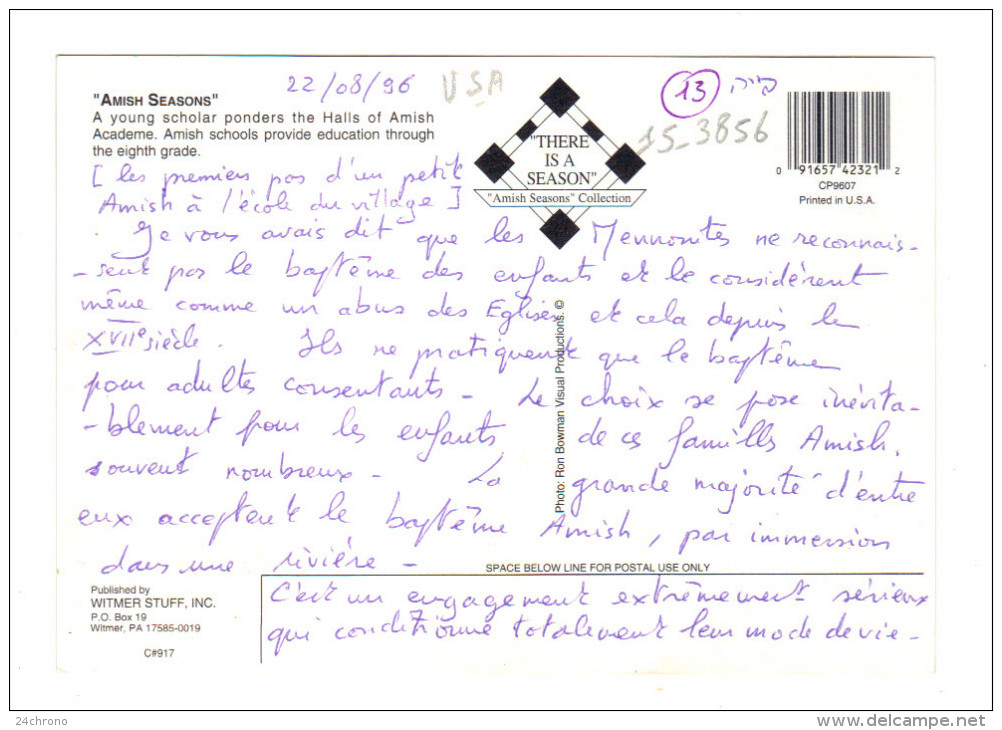 22/08/96 USA
13
15_3856
"AMISH SEASONS"
A young scholar ponders the Halls of Amish
Academe. Amish schools provide education through
the eighth grade.
"THERE
IS A
SEASON"
"Amish Seasons" Collection
0 91657 42321 2
CP9607
Printed in U.S.A.
[ les premiers pas d'un petit
Amish à l'école du village ]
Je vous avais dit que les Mennonites ne reconnais-
-sent pas le baptême des enfants et le considèrent
même comme un abus des Eglises et cela depuis le
XVIIe siècle. Ils ne pratiquent que le baptême
pour adultes consentants - Le choix se pose inévita-
-blement pour les enfants de ces familles Amish,
souvent nombreux - La grande majorité d'entre
eux acceptent le baptême Amish, par immersion
dans une rivière -
Photo: Ron Bowman Visual Productions. ©
SPACE BELOW LINE FOR POSTAL USE ONLY
C'est un engagement extrêmement sérieux
qui conditionne totalement leur mode de vie -
Published by
WITMER STUFF, INC.
P.O. Box 19
Witmer, PA 17585-0019
C#917
24chrono
delcampe.net